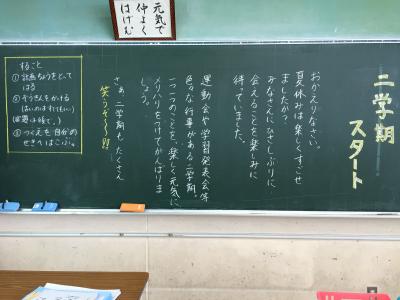 元気で
仲よく
はげむ
二学期
スタート
おかえりなさい。
夏休みは楽しくすごせ
ましたか？
みなさんにひさしぶりに
会えることを楽しみに
待っていました。
運動会や学習発表会等
色々な行事がある二学期。
一つ一つのことを、楽しく元気に、
メリハリをつけてがんばりま
しょう。
さぁ 二学期も、たくさん
笑うぞ〜!!
すること
①計画ちょうをとって
はる
②ぞうきんをかける
③つくえを自分の
せきへはこぶ。